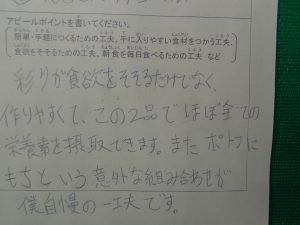 アピールポイントを書いてください。
簡単・手軽につくるための工夫、手に入りやすい食材をつかう工夫、
食欲をそそるための工夫、朝食を毎日食べるための工夫 など
彩りが食欲をそそるだけでなく、
作りやすくて、この2品でほぼ全ての
栄養素を摂取できます。また ポトフに
もちという意外な組み合わせが
僕自慢の一工夫です。